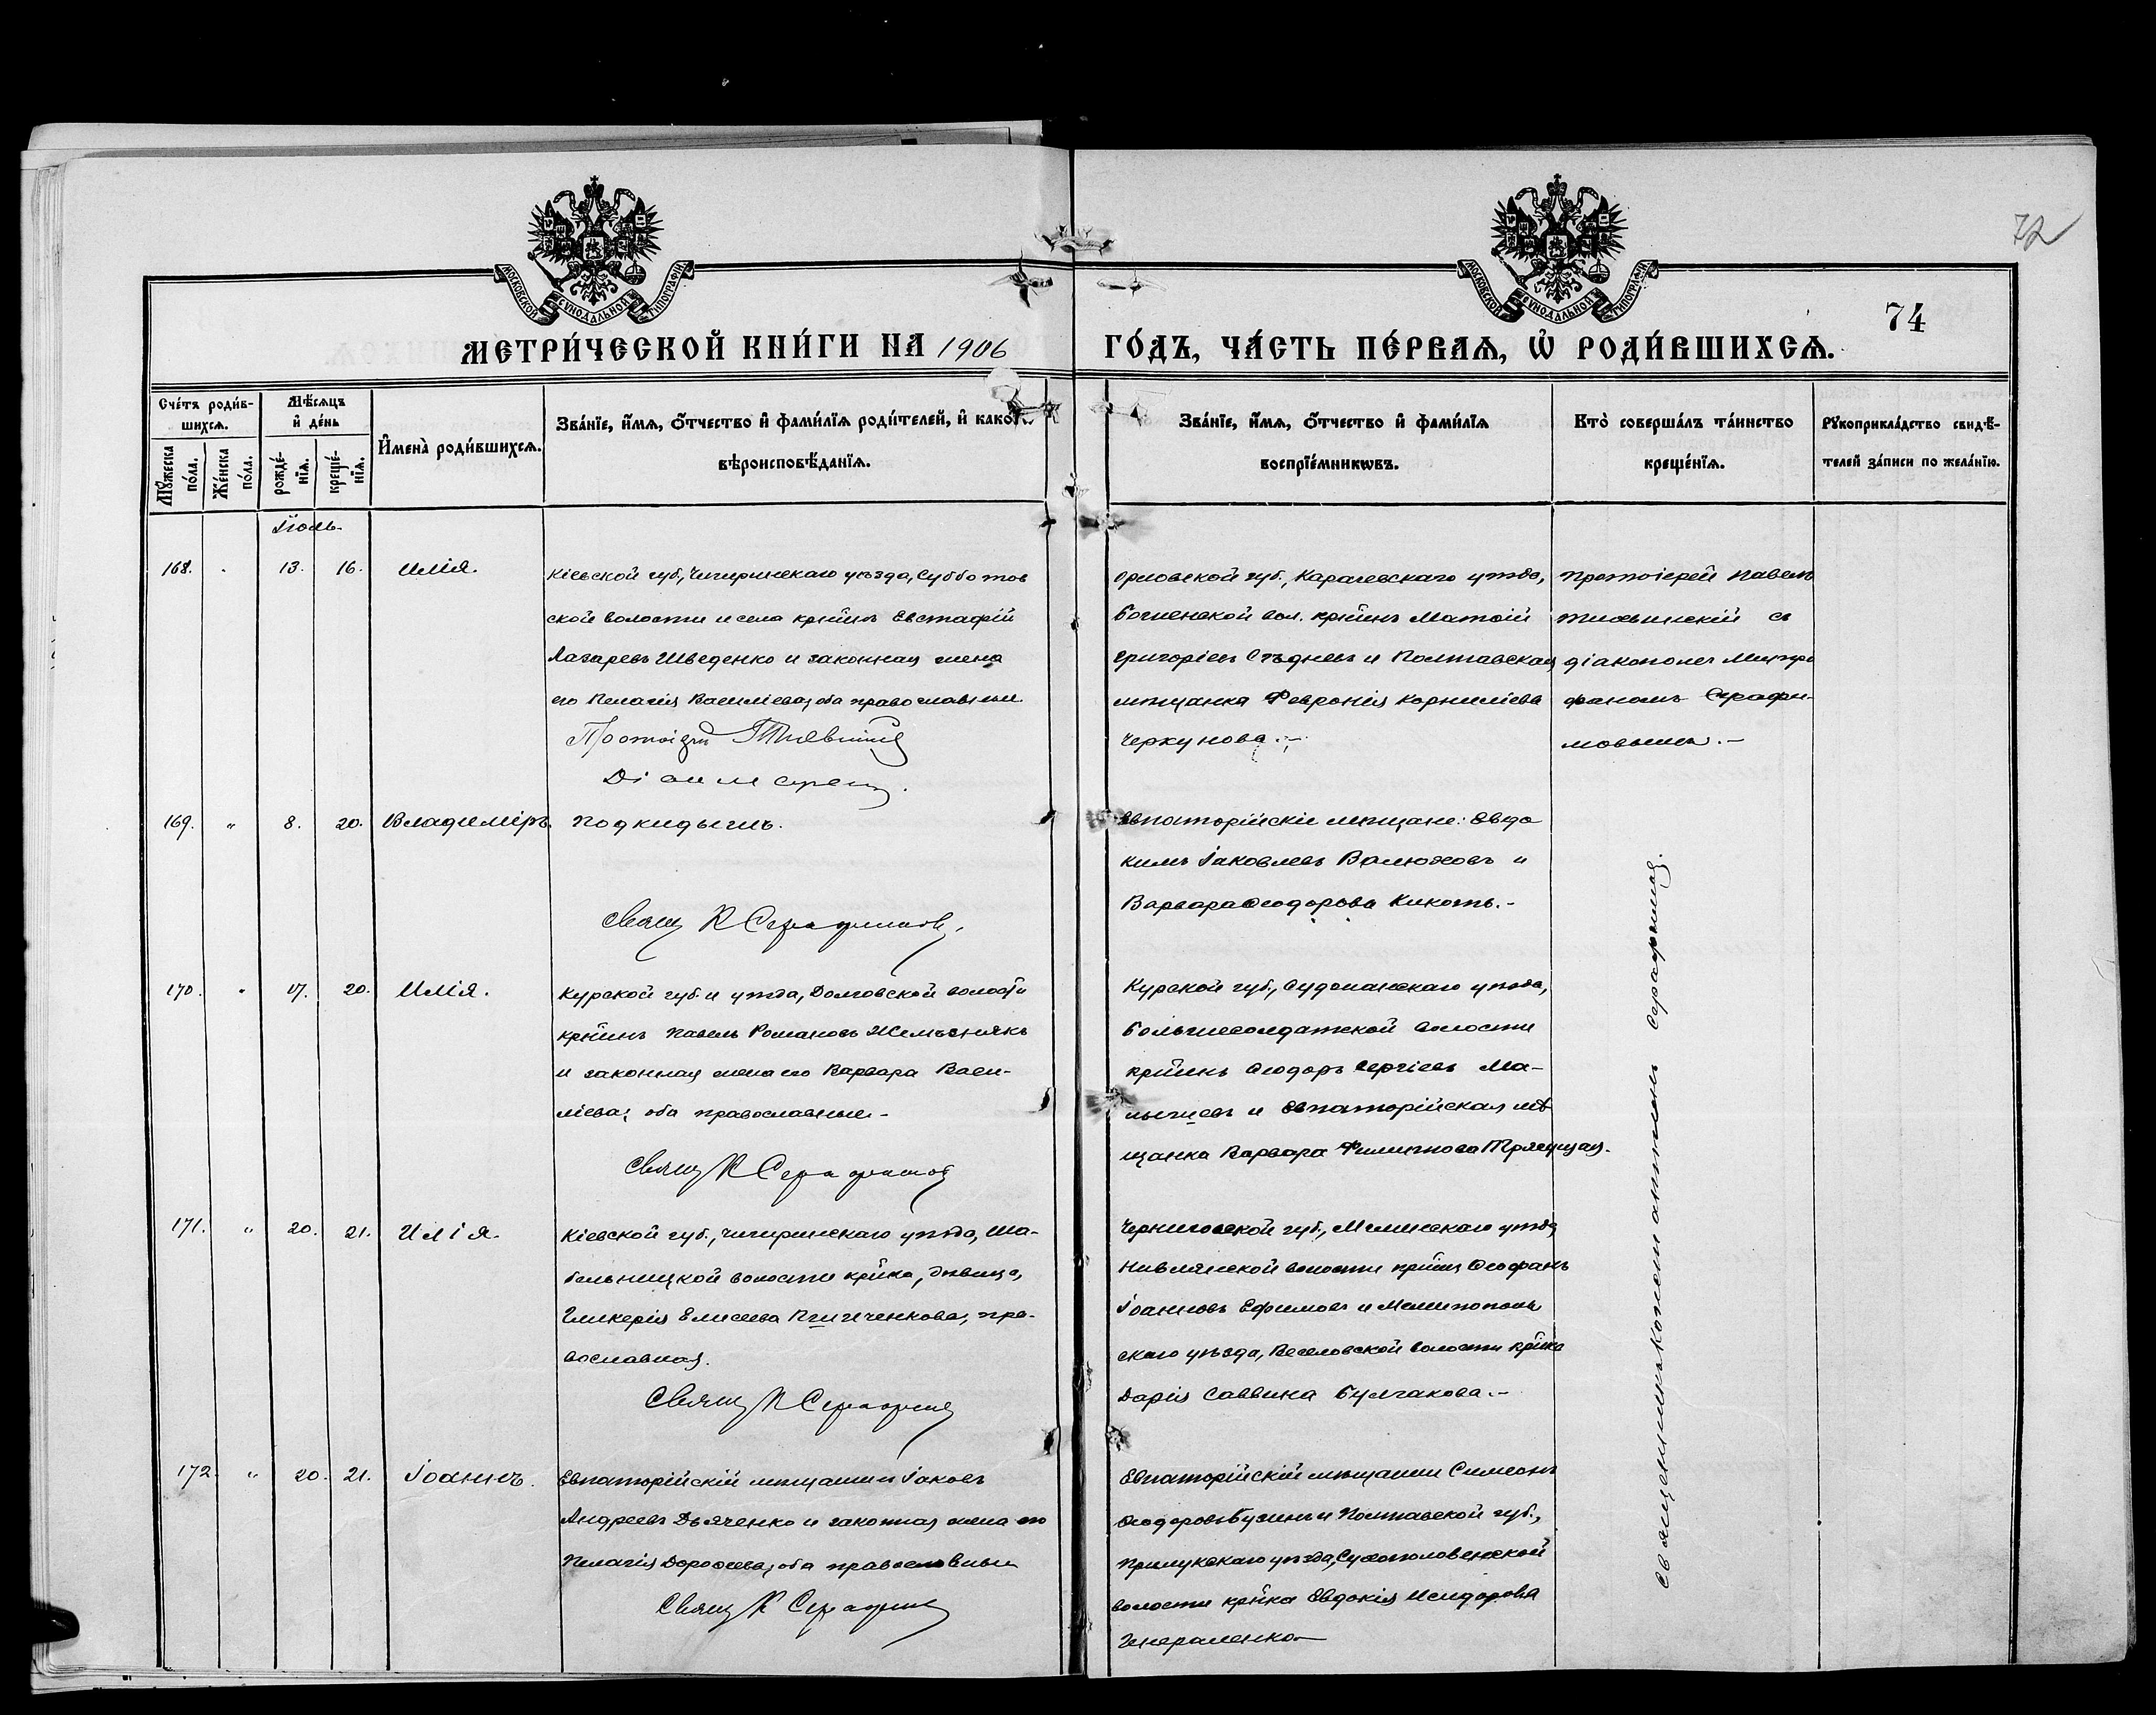 72
74
МОСКОВСКОЙ СѴНОДАЛЬНОЙ ТИПОГРАФІИ
МОСКОВСКОЙ СѴНОДАЛЬНОЙ ТИПОГРАФІИ
МЕТРИ́ЧЕСКОЙ КНИ́ГИ НА 1906 ГО́ДЪ, ЧА́СТЬ ПЕ́РВАѦ, Ѡ҆ РОДИ́ВШИХСѦ.
Сче́тъ роди́в-
шихсѧ.
Мꙋ́жеска по́ла.
Же́нска по́ла.
Мѣ́сѧцъ
и҆ де́нь
рожде́-
нїѧ.
креще́-
нїѧ.
И҆мена̀ роди́вшихсѧ.
Зва́нїе, и҆́мѧ, ѻ҆́тчество и҆ фами́лїѧ роди́телей, и҆ како́
вѣроисповѣ́данїѧ.
Зва́нїе, и҆́мѧ, ѻ҆́тчество и҆ фами́лїѧ
воспрїе́мникѡвъ.
Кто̀ соверша́лъ та́инство
креще́нїѧ.
Рꙋкоприкла́дство свидѣ́-
телей за́писи по жела́нїю.
Іюль
168. 13. 16. Илія.
Кіевской губ., Чигиринскаго уѣзда, Субботов
ской волости и села кр̃нинъ Евстафій
Лазаревъ Шведенко и законная жена
его Пелагія Василіева, оба православные
Протоіерей
Орловской губ., Карачевскаго уѣзда,
вол. кр̃нинъ Матѳій
Григоріевъ Стѣдневъ и Полтавская
мѣщанка Февронія Корниліева
Черкунова.–
Протоіерей Павелъ
Тихвинскій съ
діакономъ Митро
фаномъ Серафи-
мовымъ.–
169. " 8. 20. Владиміръ. Подкидышъ.
Свящ К Серафимов
Евпаторійскіе мѣщане: Евдо
кимъ Іаковлевъ Валюховъ и
Варвара Ѳеодорова Кикоть.–
170. " 17. 20. Илія.
Курской губ. и уѣзда, Долговской волости
кр̃нинъ Павелъ Романовъ Желѣзнякъ
и законная жена его Варвара Васи-
ліева, оба православные–
Свящ К Серафимов
Курской губ., Суджанскаго уѣзда,
Большесолдатской волости
кр̃нинъ Ѳеодоръ Сергіевъ Ма-
лышевъ и Евпаторійская мѣ
щанка Варвара Филиппова
171. " 20. 21. Илія.
Кіевской губ., Чигиринскаго уѣзда, Ша-
бельницкой волости кр̃нка, дѣвица,
Гликерія Елисеева пра-
вославная.
Свящ К Серафимов
Черниговской губ., Мглинскаго уѣзда,
волости кр̃нинъ Ѳеофанъ
Іоанновъ Ефимовъ и Мелитополь
скаго уѣзда, Веселовской волости кр̃нка
Дарія Саввина Булгакова.–
172. " 20. 21. Іоаннъ.
Евпаторійскій мѣщанинъ Іаковъ
Андреевъ Дьяченко и законная жена его
Пелагія Дороѳеева, оба православные
Свящ К Серафимов
Евпаторійскій мѣщанинъ Симеонъ
Ѳеодоровъ Бугинъ и Полтавской губ.,
Прилукскаго уѣзда, Сухополовенской
волости кр̃нка Евдокія Исидорова
Генераленко–
Священникъ Константинъ Серафимов.